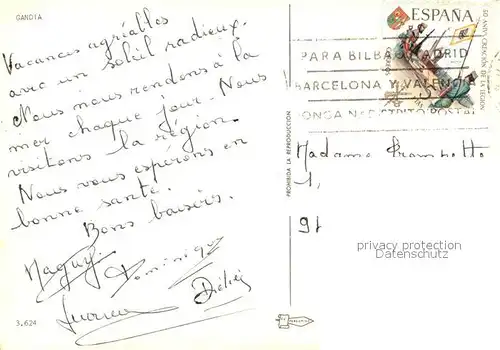 GANDIA
Vacances agréables
avec un soleil radieux.
Nous nous rendons à la
mer chaque jour. Nous
visitons la région.
Nous vous espérons en
bonne santé.
Bons baisers.
Maguy Dominique
Didier
3.624
PROHIBIDA LA REPRODUCCION
ESPAÑA
50 ANIV. CREACION DE LA LEGION
CORREOS
PARA BILBAO MADRID
BARCELONA Y VALENCIA
PONGA Nº DISTRITO POSTAL
Madame
1,
91
privacy protection
Datenschutz